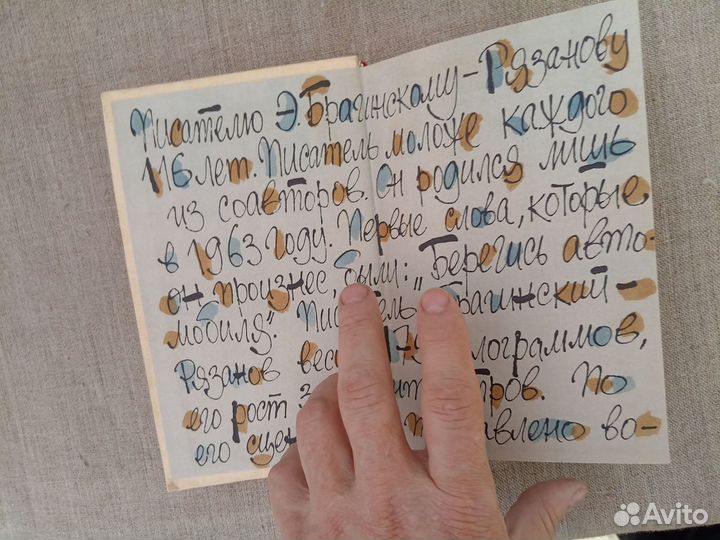 Писателю Э. Брагинскому-Рязанову
116 лет. Писатель моложе каждого
из соавторов. Он родился лишь
в 1963 году. Первые слова, которые
он произнес, были: „Берегись авто-
мобиля". Брагинский-
Рязанов
его рост По
его во-
Avito